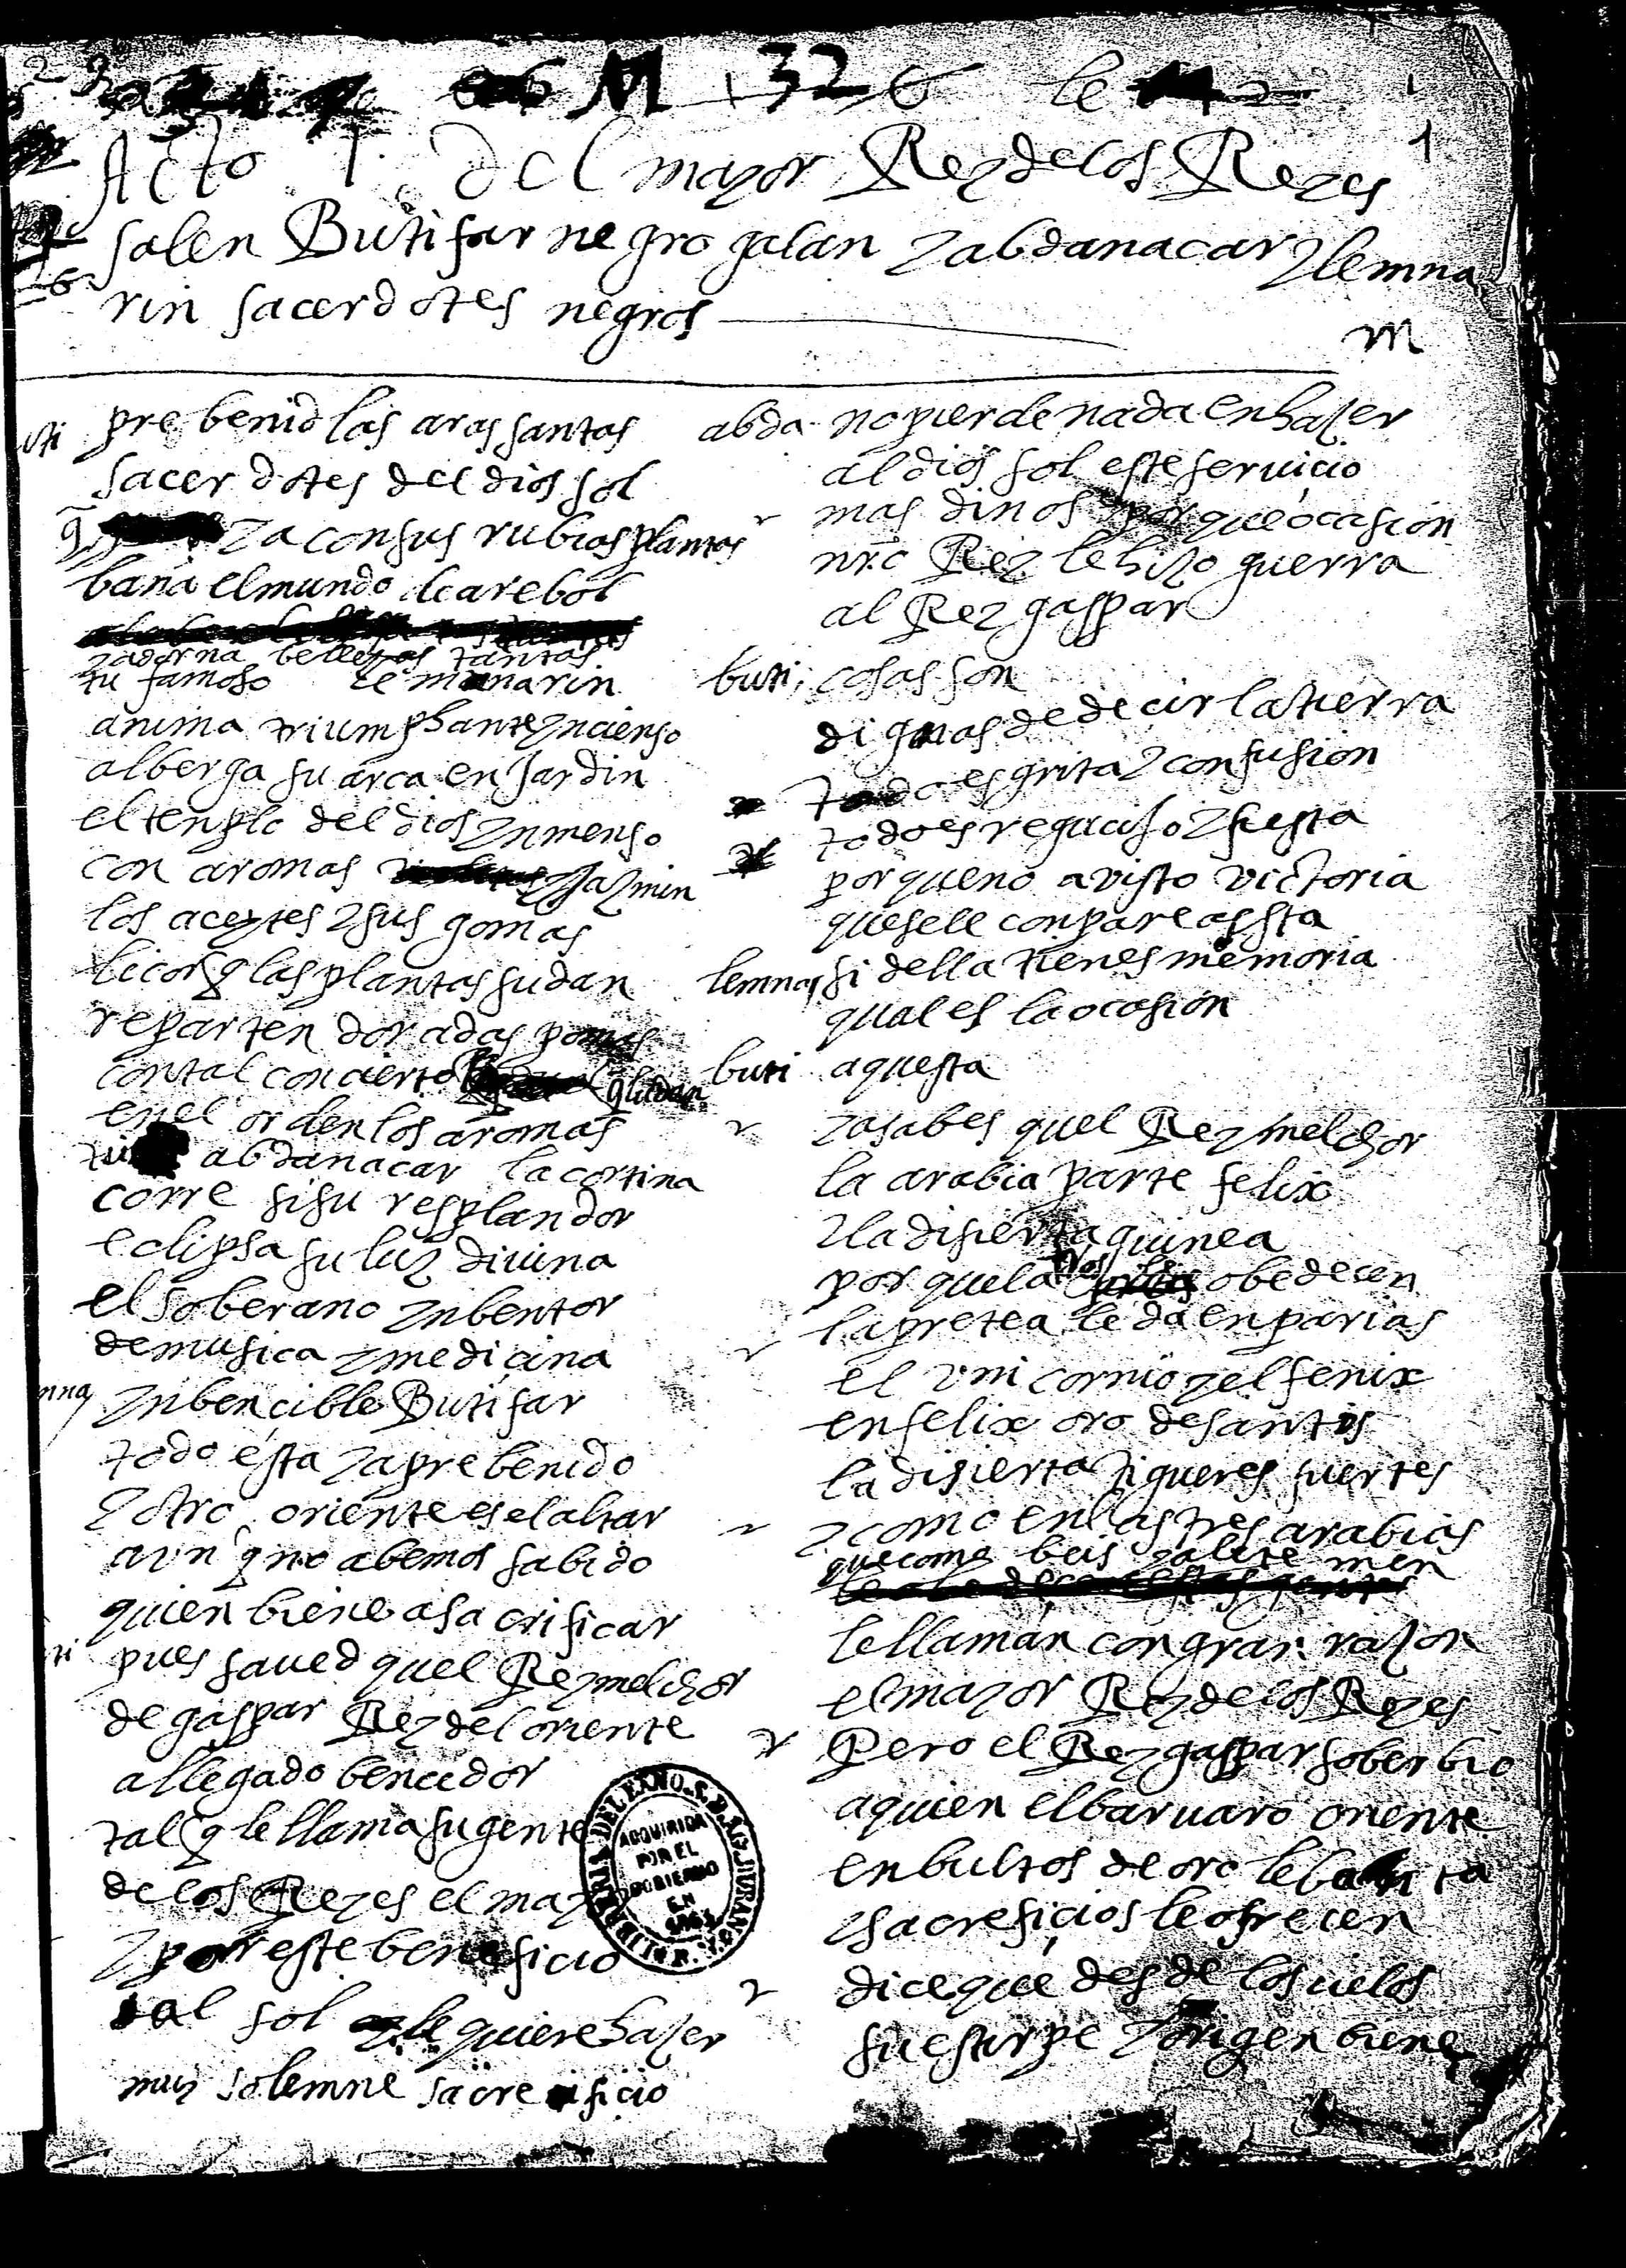 le
1
Acto 1 del mayor Rey de los Reyes
salen Butifar negro galan y abdanacar y lemna
rin sacerdotes negros
M
prebenid las aras santas
sacerdotes del dios sol
q ya con sus rubias plantas
baña el mundo de arebol
y adorna bellezas tantas
tu famoso lemanarin
anima triumphante yncienso
alberga su arca en jardin
el templo del dios ynmenso
con aromas y jazmin
los aceytes y sus gomas
licor q las plantas sudan
reparten doradas pomas
con tal concierto
en el orden los aromas
tu abdanacar la cortina
corre si su resplandor
eclipsa su luz diuina
el soberano ynbentor
de musica y medicina
mna ynbencible Butifar
todo esta ya prebenido
y otro oriente es el altar
aun q no abemos sabido
quien biene a sacrificar
ti pues saued quel Rey melchor
de gaspar Rey del oriente
a llegado bencedor
tal q le llama su gente
de los Reyes el may
y por este beneficio
al sol le quiere hazer
muy solemne sacreficio
LIBRERIA DEL EXMO. S. D. AG. DURAN
ADQUIRIDA
POR EL
GOBIERNO
EN
1863
abda no pierde nada en hazer
al dios sol este seruicio
mas dinos por que ocasion
nro Rey le hizo guerra
al Rey gaspar
buti cosas son
dignas de decir la tierra
todo es grita y confusion
todo es regucijo y fiesta
porque no a visto victoria
que se le conpare a esta
lemna si della tienes memoria
qual es la ocasion
buti aquesta
ya sabes quel Rey melchor
la arabia parte felix
y la disierta guinea
por que la obedecen
la pretea le da en parias
el vnicornio y el fenix
en felix oro de santis
la disierta tigueres fuertes
y como en las tres arabias
que como beis
le llaman con gran razon
el mayor Rey de los Reyes
Pero el Rey gaspar soberbio
a quien el baruaro oriente
en bultos de oro lebanta
y sacreficios le ofrecen
dice que desde los cielos
su estirpe y origen biene